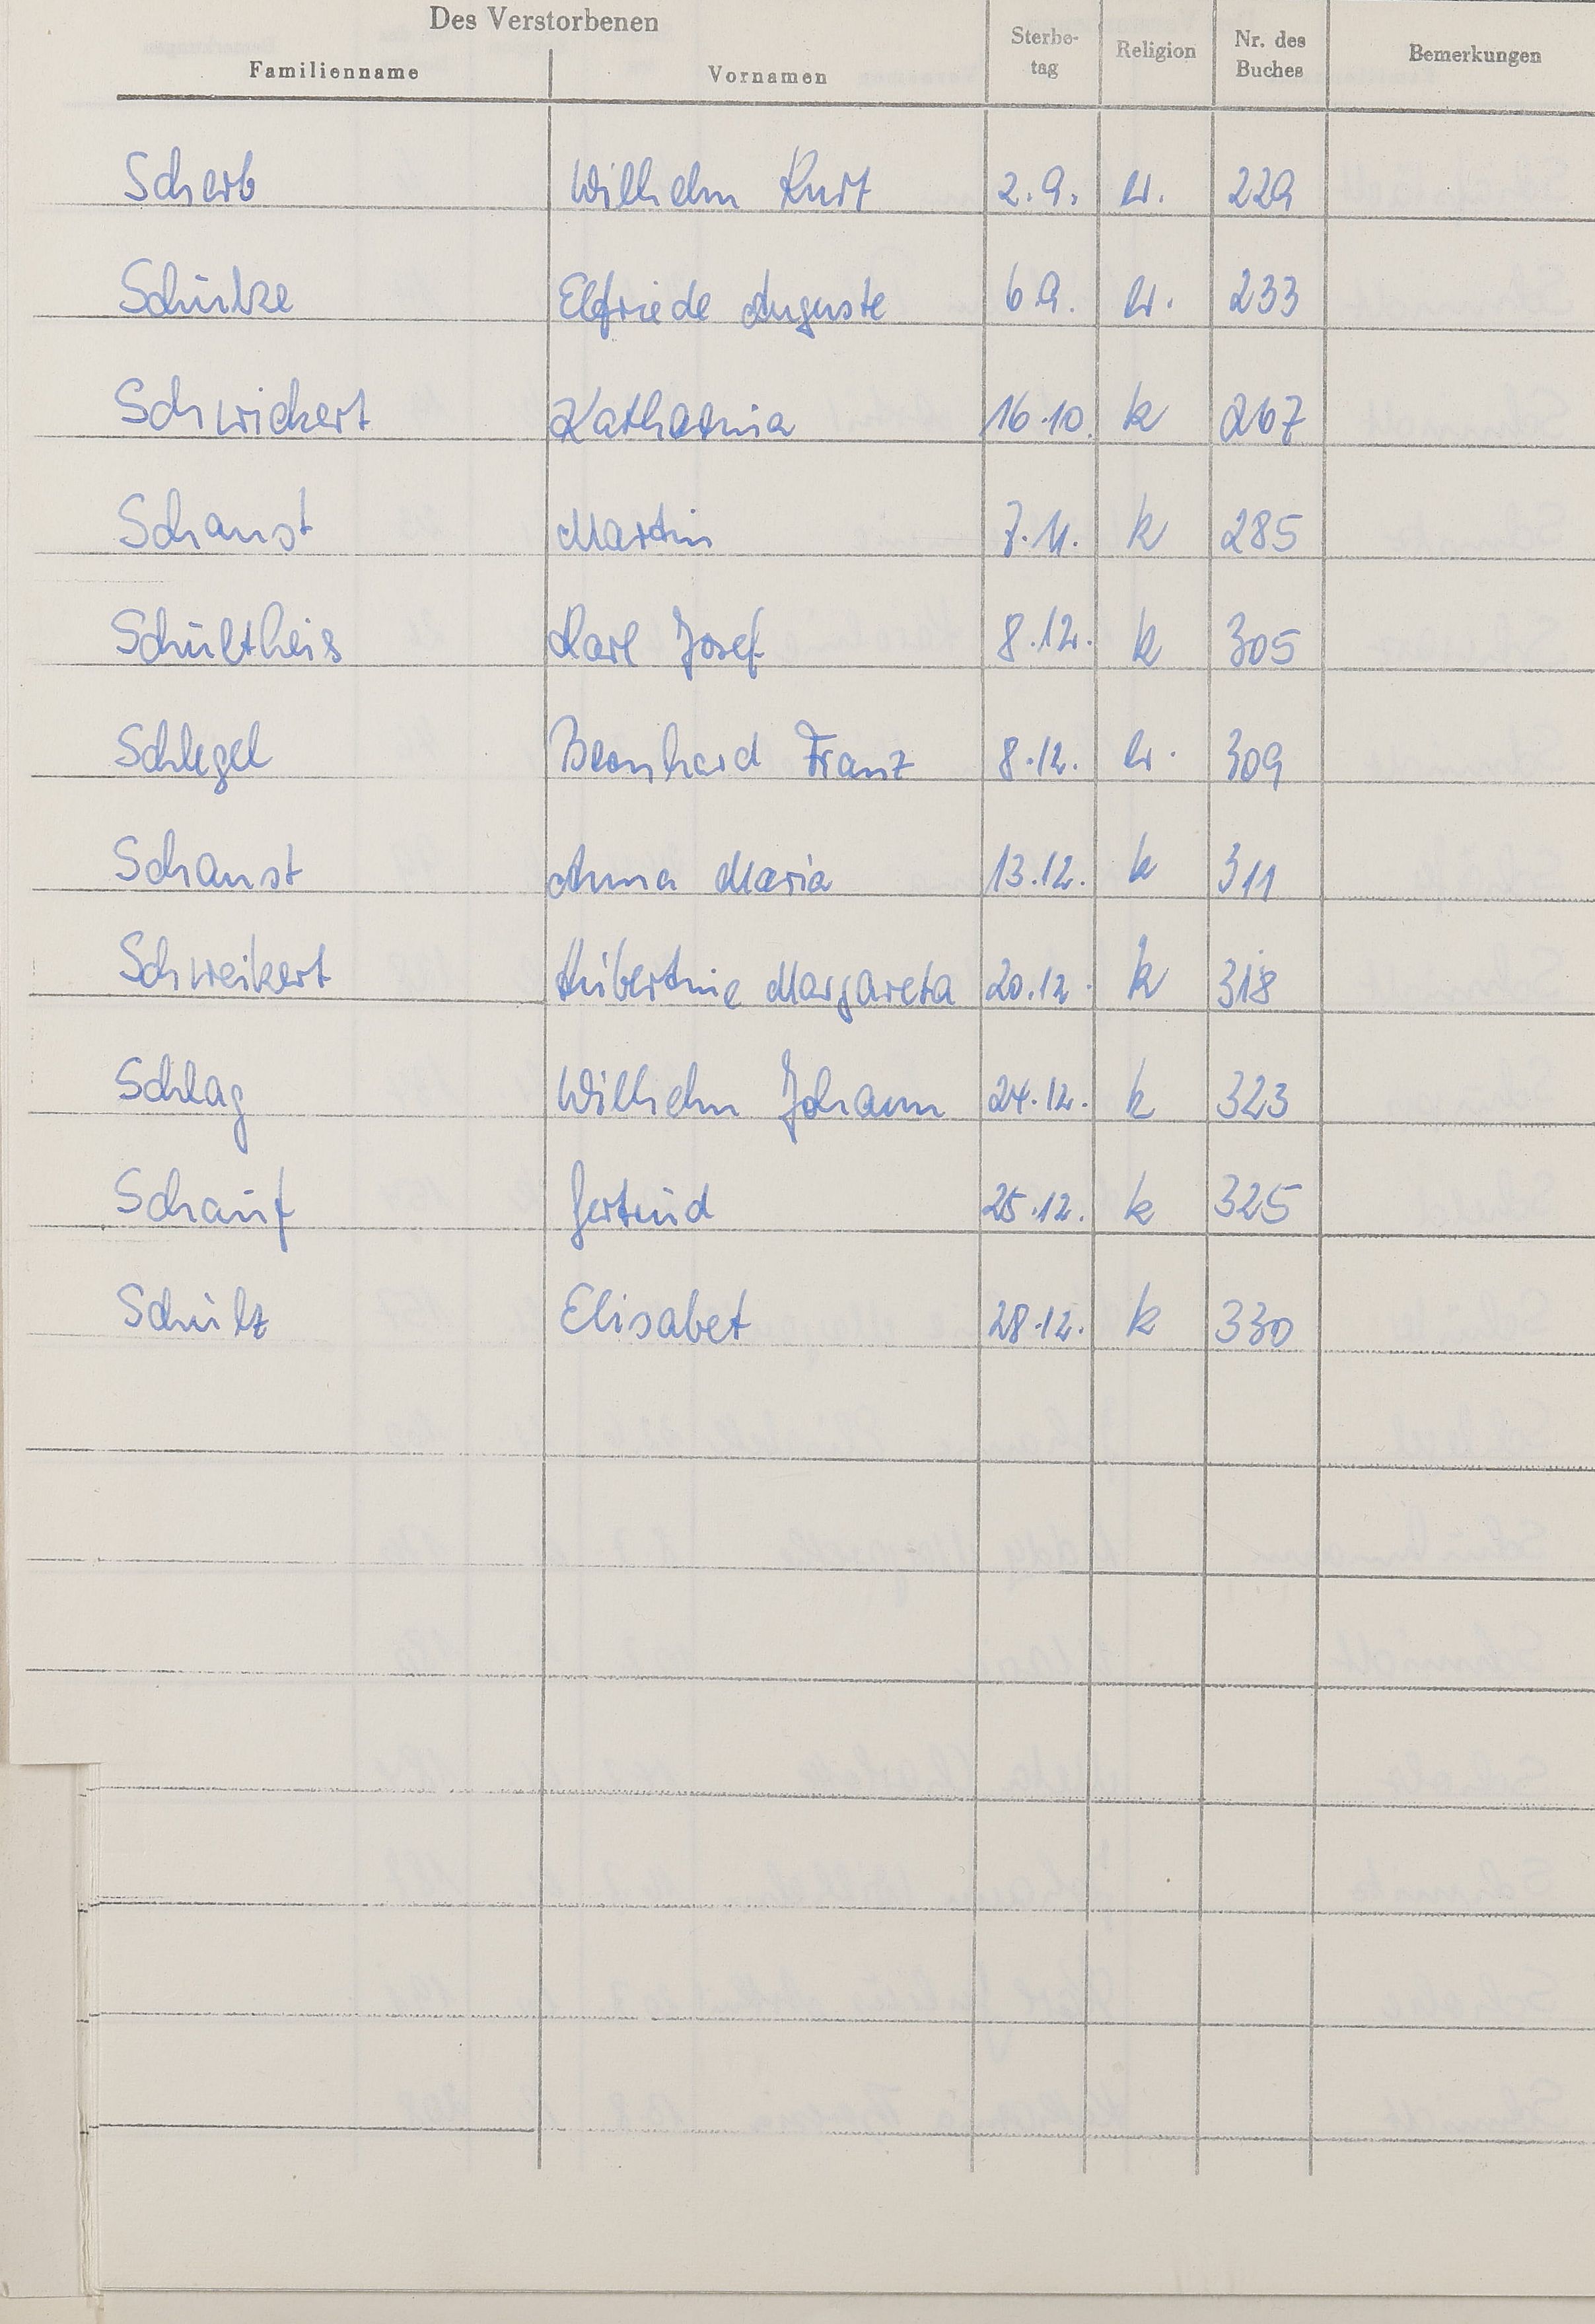 Des Verstorbenen
Familienname Vornamen Sterbe-tag Religion Nr. des Buches Bemerkungen
Scherb Wilhelm Kurt 2.9. ev. 229
Schulze Elfriede Auguste 6.9. ev. 233
Schwickert Katharina 16.10. k 267
Schanst Martin 7.11. k 285
Schultheis Karl Josef 8.12. k 305
Schlegel Bernhard Franz 8.12. ev. 309
Schanst Anna Maria 13.12. k 311
Schweikert Hubertine Margareta 20.12. k 318
Schlag Wilhelm Johann 24.12. k 323
Schauf Gertrud 25.12. k 325
Schulz Elisabet 28.12. k 330